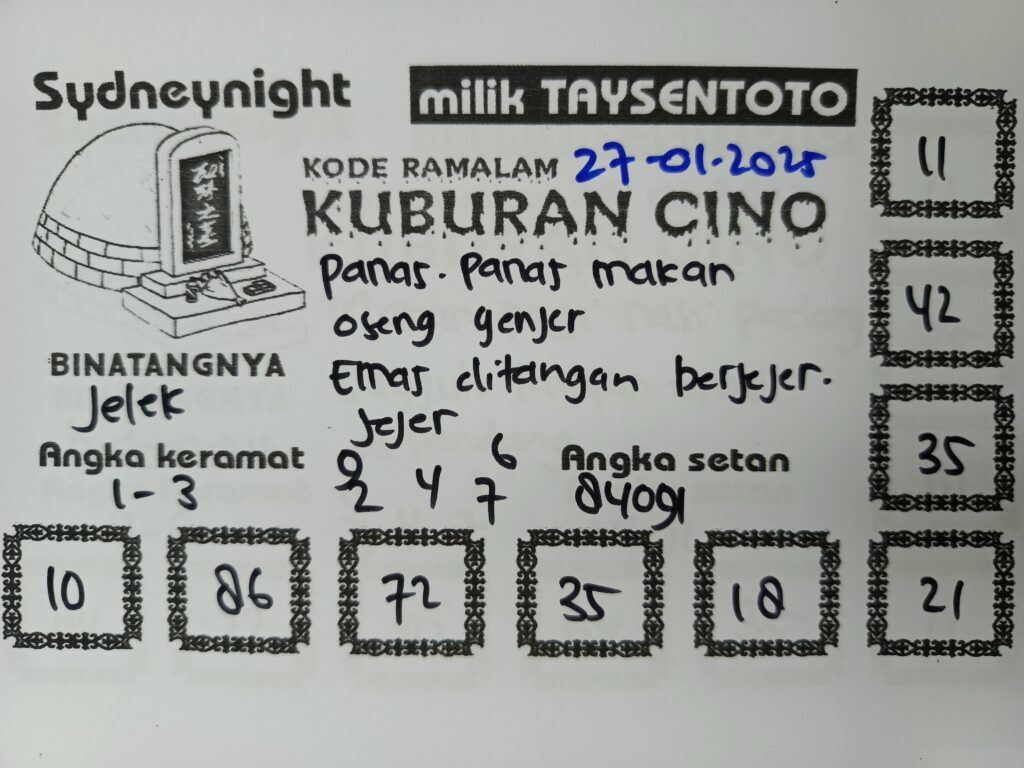 Sydneynight
milik TAYSENTOTO
KODE RAMALAM 27-01-2025
KUBURAN CINO
panas. panas makan
oseng genjer
Emas ditangan berjejer.
jejer
BINATANGNYA
Jelek
Angka keramat
1-3
9 6
2 4 7
Angka setan
84091
11
42
35
10 86 72 35 18 21